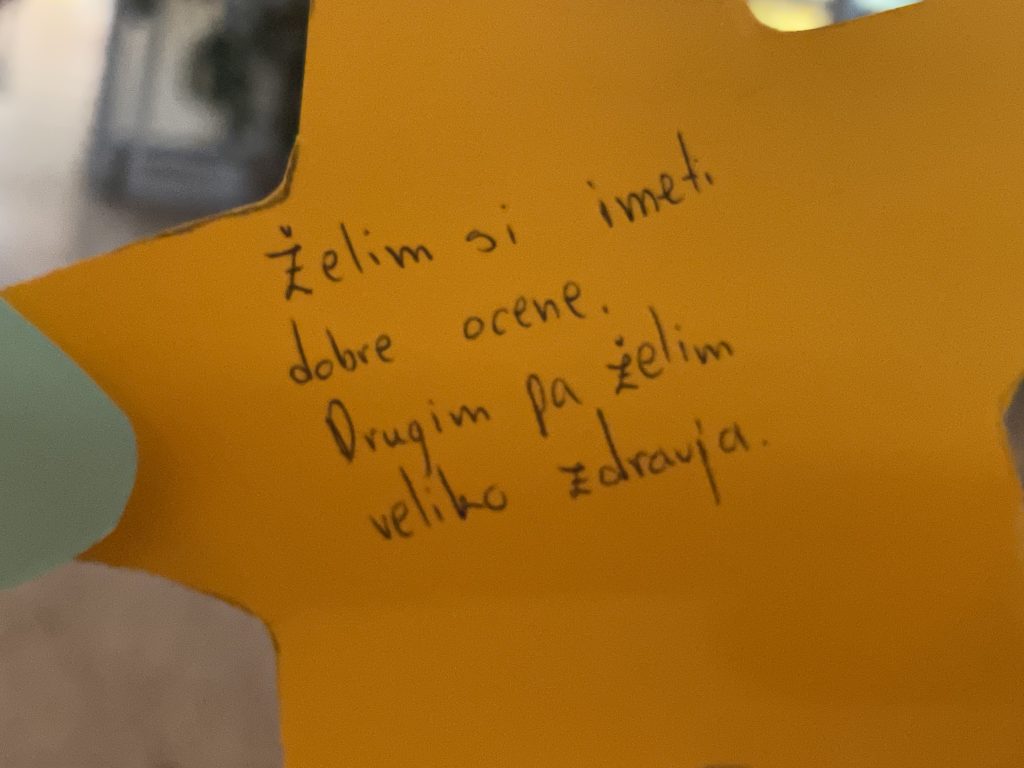 Želim si imeti
dobre ocene.
Drugim pa želim
veliko zdravja.